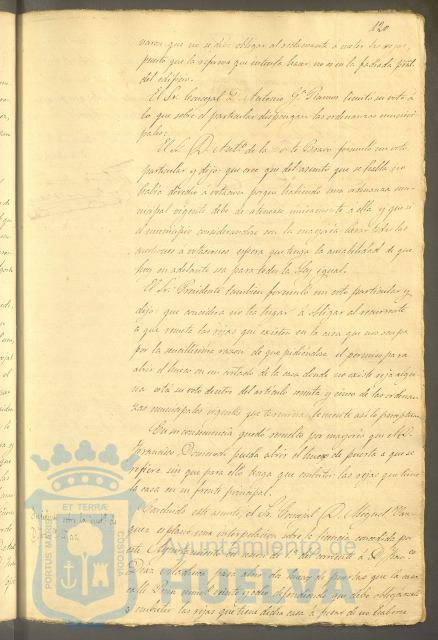 120
varon que no se debe obligar al reclamante a meter las rejas,
puesto que la reforma que intenta hacer no es en la fachada pral.
del edificio.
El Sr. Concejal D. Antonio Gª Ramos limitó su voto á
lo que sobre el particular dispongan las ordenanzas munici-
pales:
El Sr. D. Antº de la Corte Bravo formuló un voto
particular y dijo: que cree que del asunto que se habla no
había derecho a votacion porque habiendo una ordenanza mu-
nicipal vigente debe de atenerse unicamente á ella y que si
el municipio considerandose con la mayoria lleva todos los
á votaciones espera que tenga la amabilidad de que
hoy en adelante sea para todos la Ley igual.
El Sr. Presidente tambien formuló un voto particular y
dijo: que considera no ha lugar á obligar al recurrente
á que remeta las rejas que existen en la casa que nos ocupa
por la sencillisima razon de que pidiendose el permiso para
abrir el hueco en un costado de la casa donde no existe reja algu-
na está su voto dentro del articulo y cinco de las ordenan-
zas municipales vigentes que terminantemente así lo preceptúan
En su consecuencia quedó resuelto por mayoria que el D.
Francisco Domenech pueda abrir el hueco de puerta a que se
refiere sin que para ello tenga que embutir las rejas que tiene
la casa en su frente principal.
Concluido este asunto, el Sr. Concejal D. Miguel Vaz-
quez esplanó una interpelacion sobre la licencia concedida por
este Ayuntamiento en de corriente á D. Juan
Diaz para abrir dos huecos de puertas que la casa
calle
embutir las rejas que tiene dicha casa á pesar de no haberse
PORTUS MARIS
ET TERRÆ
CUSTODIA
Ayuntamiento de
HUELVA